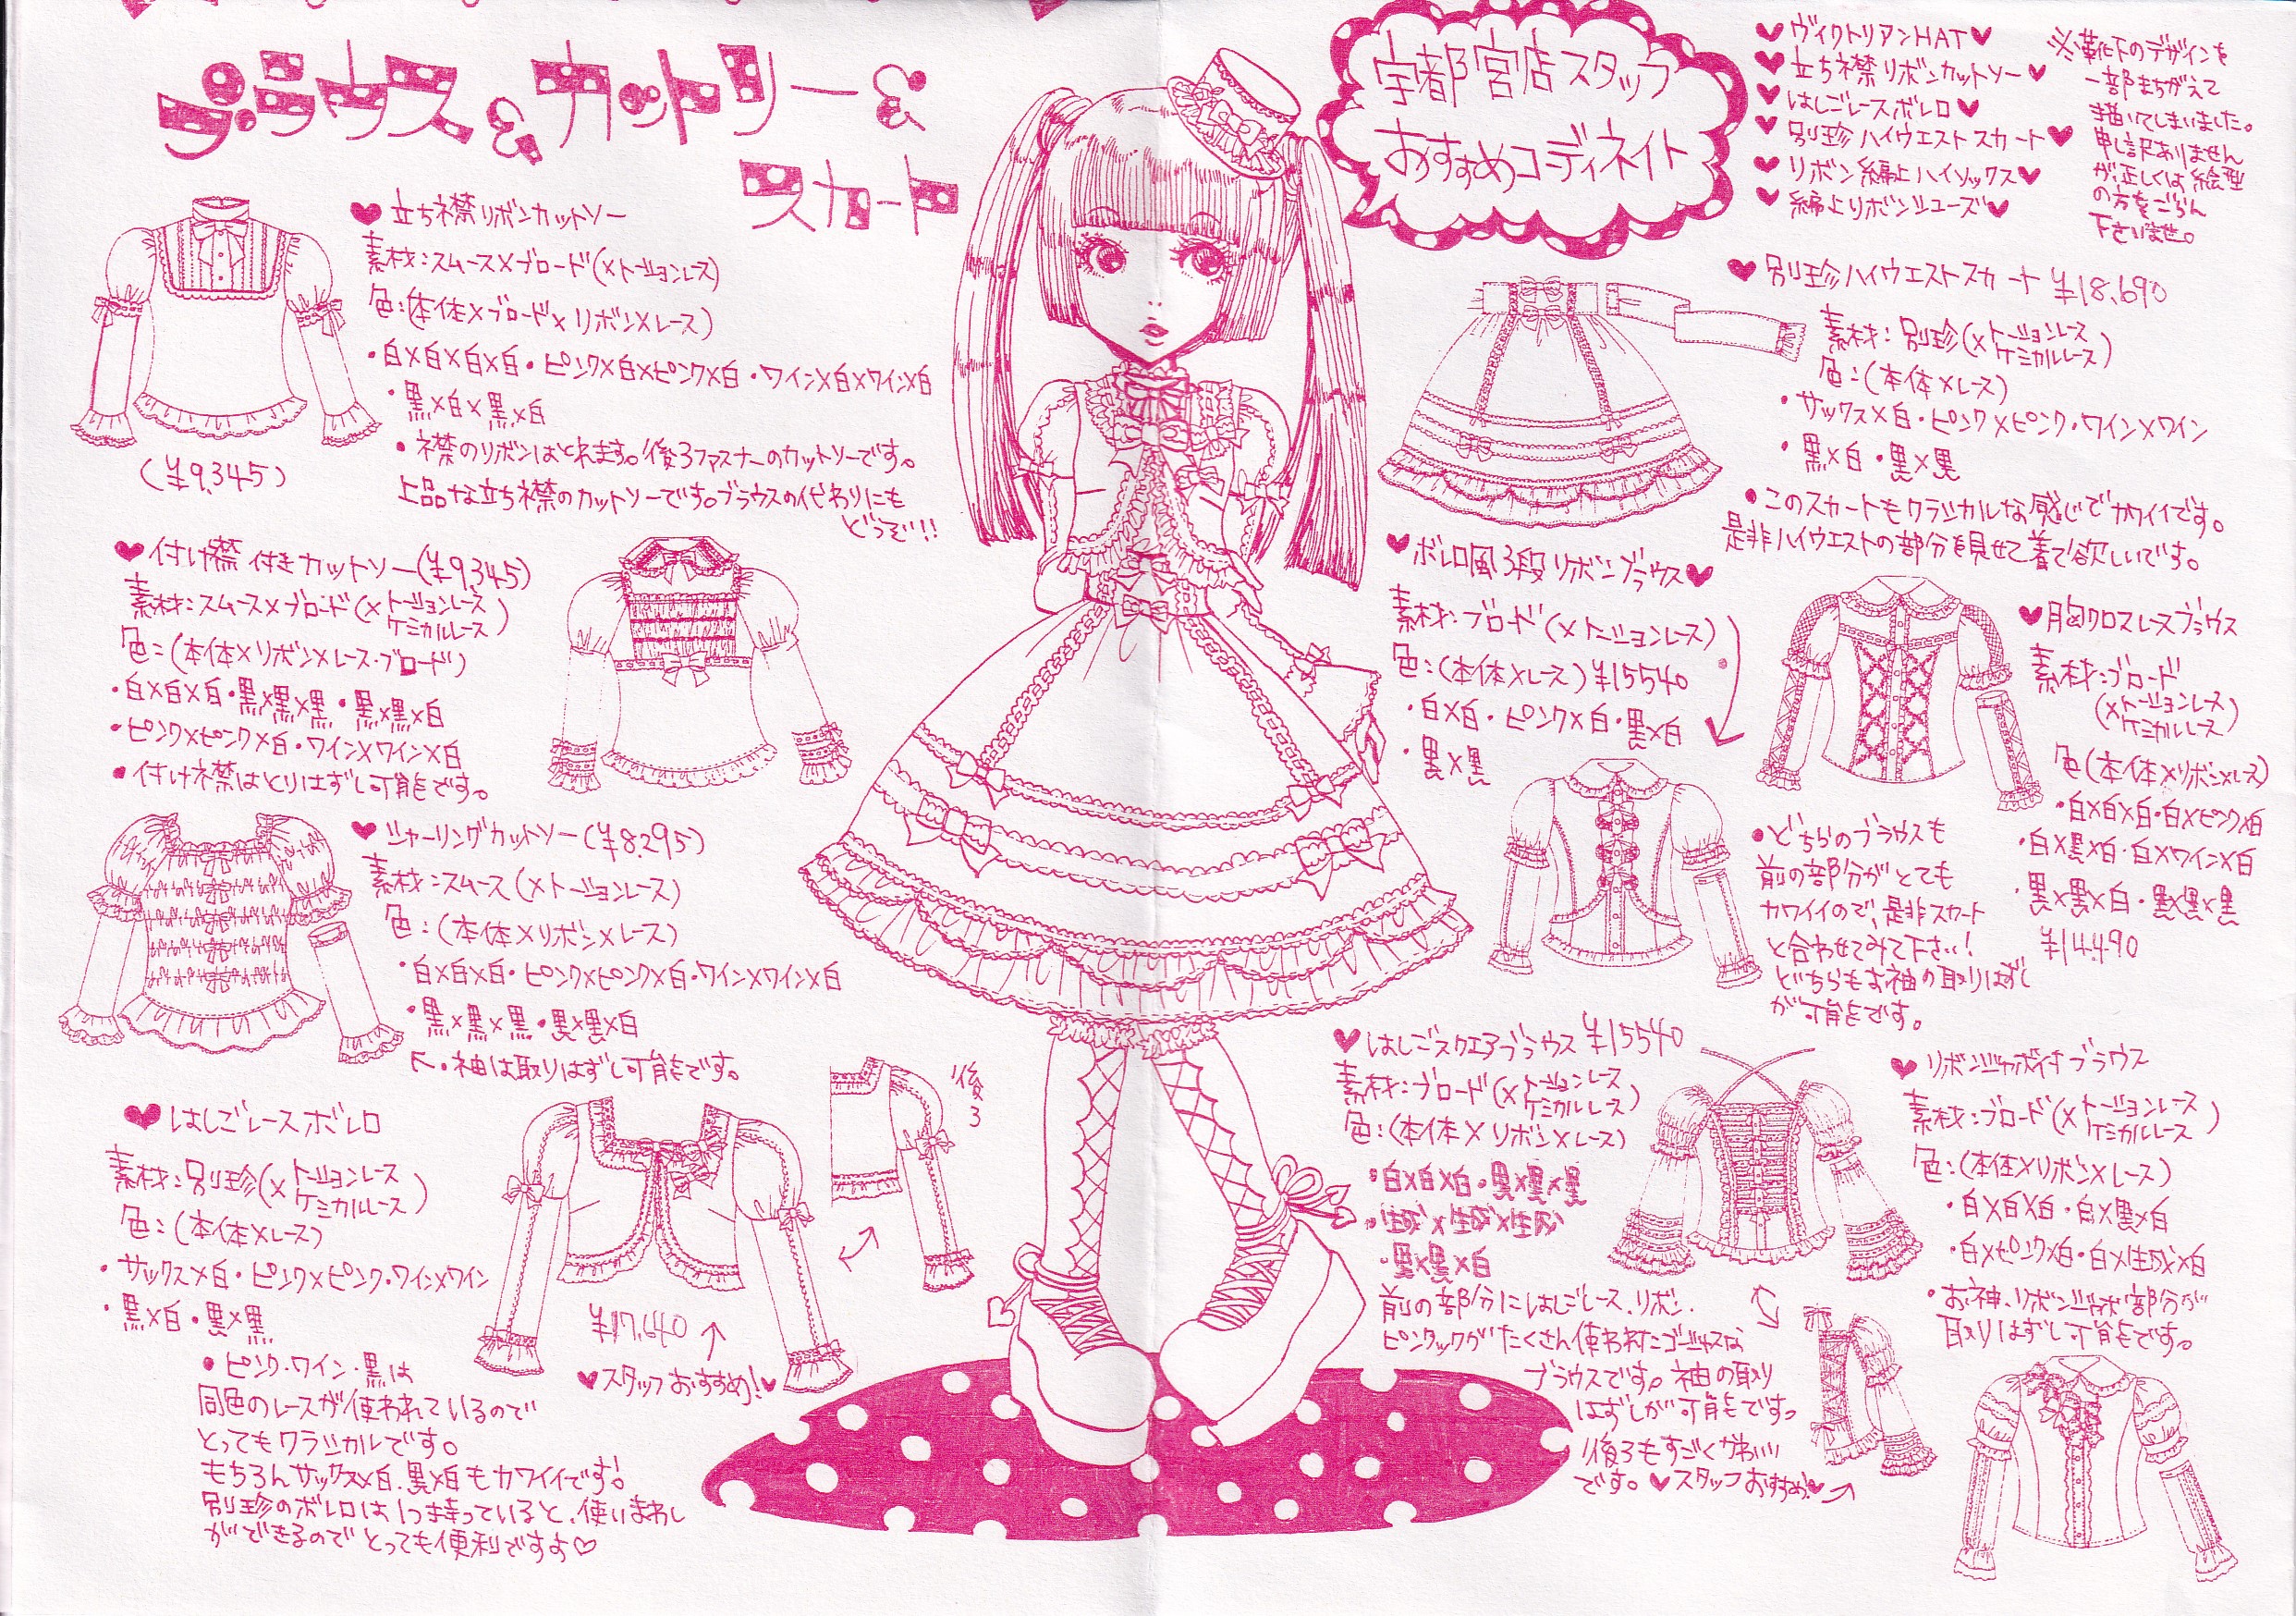 ブラウス&カットソー&
スカート
♥立ち襟リボンカットソー
素材:スムース×ブロード(×トーションレース)
色:(本体×ブロード×リボン×レース)
・白×白×白×白・ピンク×白×ピンク×白・ワイン×白×ワイン×白
・黒×白×黒×白
・襟のリボンはとれます。後ろファスナーのカットソーです。
上品な立ち襟のカットソーです。ブラウスの代わりにも
どうぞ!!
(¥9,345)
♥付け襟付きカットソー(¥9,345)
素材:スムース×ブロード(×トーションレース
ケミカルレース)
色:(本体×リボン×レース・ブロード)
・白×白×白・黒×黒×黒・黒×黒×白
・ピンク×ピンク×白・ワイン×ワイン×白
・付け襟はとりはずし可能です。
♥シャーリングカットソー(¥8,295)
素材:スムース(×トーションレース)
色:(本体×リボン×レース)
・白×白×白・ピンク×ピンク×白・ワイン×ワイン×白
・黒×黒×黒・黒×黒×白
↖・袖は取りはずし可能です。
♥はしごレースボレロ
素材:別珍(×トーションレース
ケミカルレース)
色:(本体×レース)
・サックス×白・ピンク×ピンク・ワイン×ワイン
・黒×白・黒×黒
・ピンク・ワイン・黒は
同色のレースが使われているので
とってもクラシカルです。
もちろんサックス×白、黒×白もカワイイです!
別珍のボレロは1つ持っていると、使いまわし
ができるのでとっても便利ですよ♡
後ろ
¥17,640↑
♥スタッフおすすめ!♥
宇都宮店スタッフ
おすすめコーディネイト
♥ヴィクトリアンHAT♥
♥立ち襟リボンカットソー♥
♥はしごレースボレロ♥
♥別珍ハイウエストスカート♥
♥リボン編上ハイソックス♥
♥編上リボンシューズ♥
※靴下のデザインを
一部まちがえて
描いてしまいました。
申し訳ありません
が正しくは絵型
の方をごらん
下さいませ。
♥別珍ハイウエストスカート ¥18,690
素材:別珍(×トーションレース
ケミカルレース)
色:(本体×レース)
・サックス×白・ピンク×ピンク・ワイン×ワイン
・黒×白・黒×黒
・このスカートもクラシカルな感じでカワイイです。
是非ハイウエストの部分を見せて着て欲しいです。
♥ボレロ風3段リボンブラウス♥
素材:ブロード(×トーションレース)
色:(本体×レース)¥15540
・白×白・ピンク×白・黒×白
・黒×黒
♥胸クロスレースブラウス
素材:ブロード
(×トーションレース
ケミカルレース)
色(本体×リボン×レース)
・白×白×白・白×ピンク×白
・白×黒×白・白×ワイン×白
・黒×黒×白・黒×黒×黒
¥14,490
・どちらのブラウスも
前の部分がとても
カワイイので、是非スカート
と合わせてみて下さい!
どちらもお袖の取りはずし
が可能です。
♥はしごスクエアブラウス ¥15540
素材:ブロード(×トーションレース
ケミカルレース)
色:(本体×リボン×レース)
・白×白×白・黒×黒×黒
・生成×生成×生成
・黒×黒×白
前の部分にはしごレース、リボン、
ピンタックがたくさん使われたゴージャスな
ブラウスです。袖の取り
はずしが可能です。
後ろもすごくかわいい
です。♥スタッフおすすめ!♥
♥リボンジャボ付ブラウス
素材:ブロード(×トーションレース
ケミカルレース)
色:(本体×リボン×レース)
・白×白×白・白×黒×白
・白×ピンク×白・白×生成×白
・お袖、リボンジャボ部分が
取りはずし可能です。